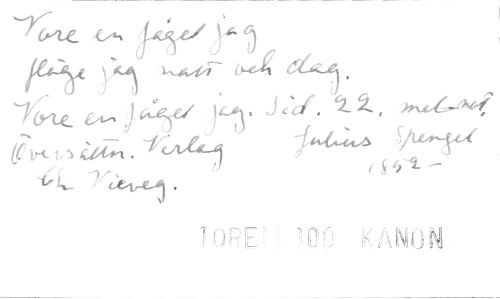 Vore en fågel jag
flöge jag natt och dag.
Vore en fågel jag. Sid. 22. mel. not.
Översättn. Verlag Julius Spengel
Ch Vieweg. 1852 –
TOREL 100 KANON.